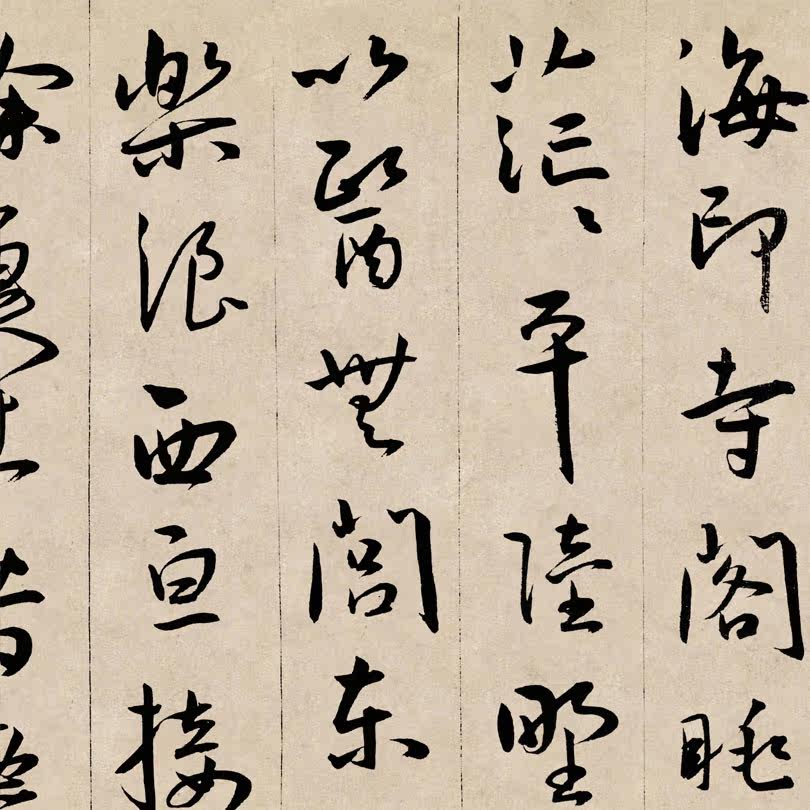 海印寺閣眺
茫〻平陸野
以醫無閭東
樂浪西亘接